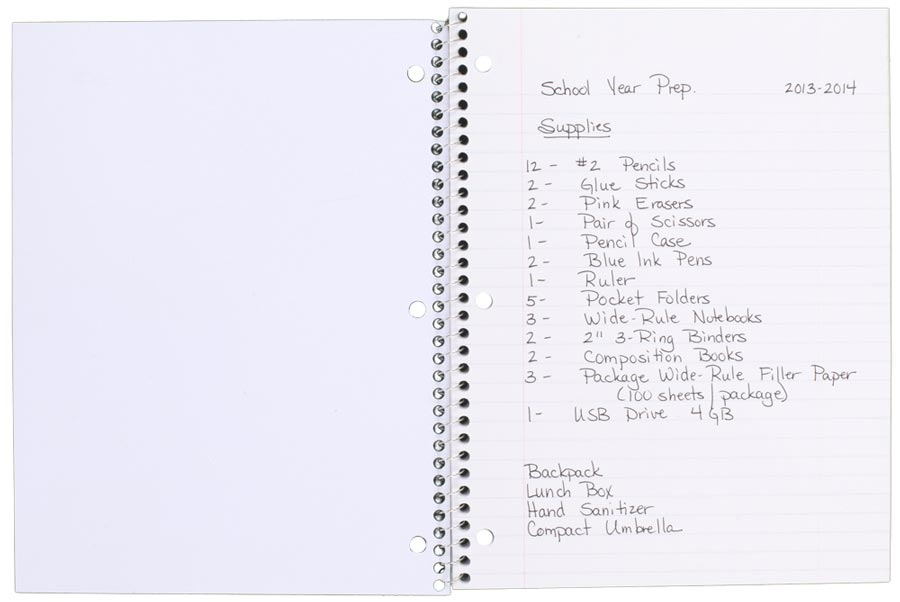 School Year Prep. 2013-2014
Supplies
12 - #2 Pencils
2 - Glue Sticks
2 - Pink Erasers
1- Pair of Scissors
1 - Pencil Case
2 - Blue Ink Pens
1 - Ruler
5- Pocket Folders
3 - Wide-Rule Notebooks
2 - 2" 3-Ring Binders
2 - Composition Books
3 - Package Wide-Rule Filler Paper
(100 sheets/package)
1- USB Drive 4GB
Backpack
Lunch Box
Hand Sanitizer
Compact Umbrella